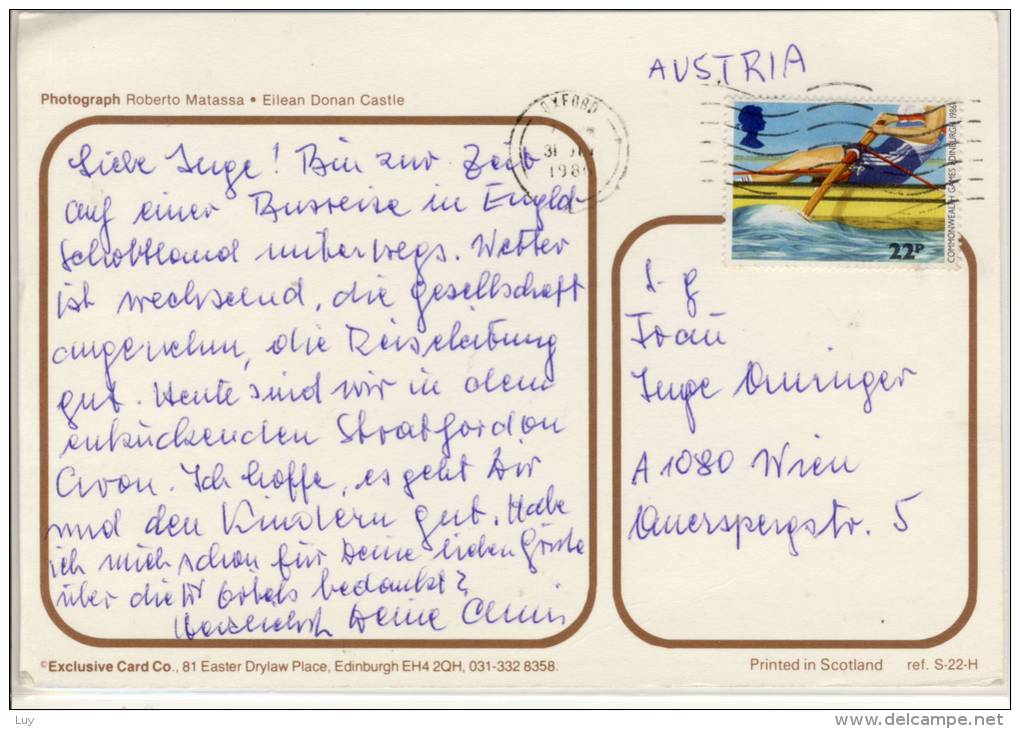 AUSTRIA
Photograph Roberto Matassa • Eilean Donan Castle
OXFORD
31
198
COMMONWEALTH GAMES EDINBURGH 1986
22P
Liebe Inge! Bin zur Zeit
auf einer Busreise in Engld-
Schottland unterwegs. Wetter
ist wechselnd, die Gesellschaft
angenehm, die Reiseleitung
gut. Heute sind wir in dem
entzückenden Stratford on
Avon. Ich hoffe, es geht Dir
und den Kindern gut. Habe
ich mich schon für Deine lieben Grüße
über die bedankt?
Herzlichst Deine
Frau
Inge
A 1080 Wien
Auerspergstr. 5
©Exclusive Card Co., 81 Easter Drylaw Place, Edinburgh EH4 2QH, 031-332 8358.
Printed in Scotland ref. S-22-H
Luy
www.delcampe.net